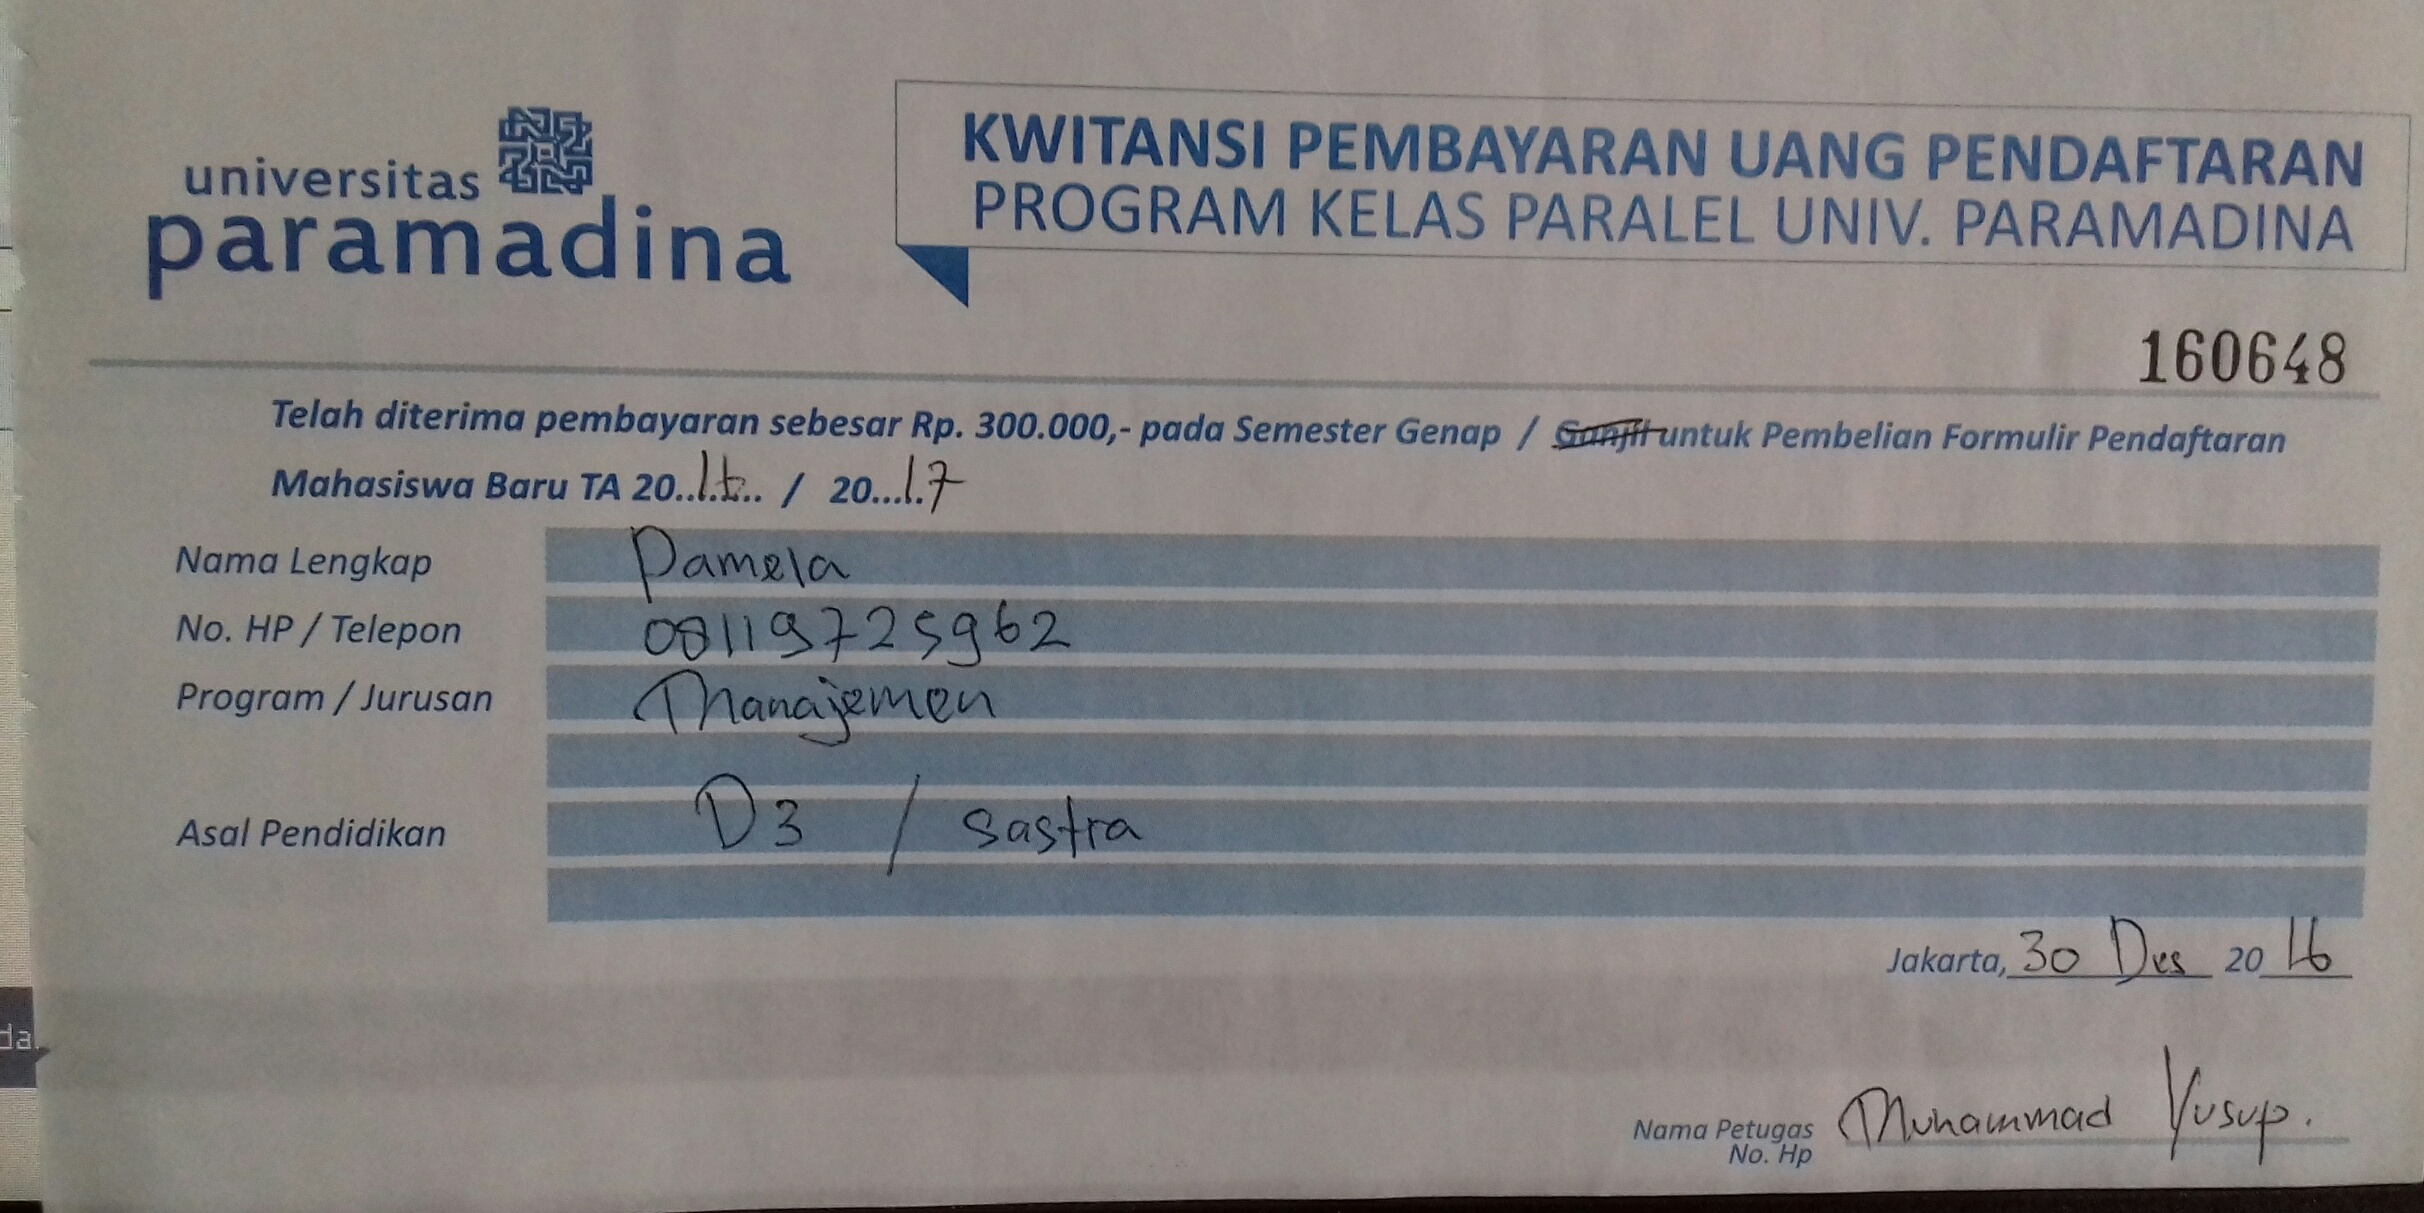 universitas
paramadina
KWITANSI PEMBAYARAN UANG PENDAFTARAN
PROGRAM KELAS PARALEL UNIV. PARAMADINA
160648
Telah diterima pembayaran sebesar Rp. 300.000,- pada Semester Genap / Ganjil untuk Pembelian Formulir Pendaftaran
Mahasiswa Baru TA 20..16.. / 20...17
Nama Lengkap Pamela
No. HP / Telepon 08119725962
Program / Jurusan Manajemen
Asal Pendidikan D3 / Sastra
Jakarta, 30 Des 2016
Nama Petugas Muhammad Yusup.
No. Hp
da.